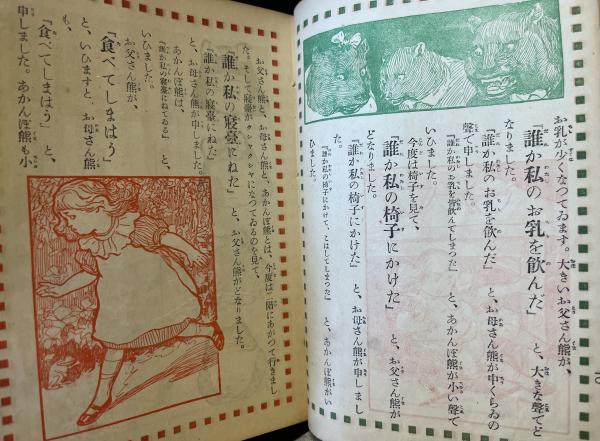 お乳が少くなつてゐます。大きいお父さん熊が、
『誰か私のお乳を飲んだ』　と、大きな聲でど
なりました。
『誰か私のお乳を飲んだ』　と、お母さん熊が中くらゐの
聲で申しました。
『誰か私のお乳を皆飲んでしまつた』　と、あかんぼ熊が小い聲で
いひました。
今度は椅子を見て、
『誰か私の椅子にかけた』　と、お父さん熊が
どなりました。
『誰か私の椅子にかけた』　と、お母さん熊が申しまし
た。
『誰か私の椅子にかけて、こはしてしまつた』　と、あかんぼ熊がい
ひました。
お父さん熊と、お母さん熊と、あかんぼ熊とは、今度は二階にあがつて行きまし
た。そして寝臺がクシヤクシヤになつてゐるのを見て、
『誰か私の寝臺にねた』　と、お父さん熊がどなりました。
『誰か私の寝臺にねた』
と、お母さん熊が申しました。
あかんぼ熊は、
『誰か私の寝臺にねてゐる』　と、
いひました。
お父さん熊が、
『食べてしまはう』
と、いひますと、お母さん熊
も、
『食べてしまはう』　と
申しました。あかんぼ熊も小